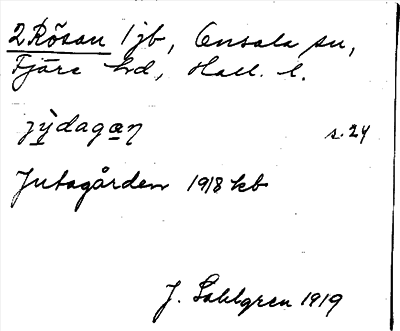 2 Rösan 1 jb, Onsala sn,
Fjäre hd, Hall. l.
jỳdagaṇ s. 24
Jutagården 1918 kb
J. Sahlgren 1919